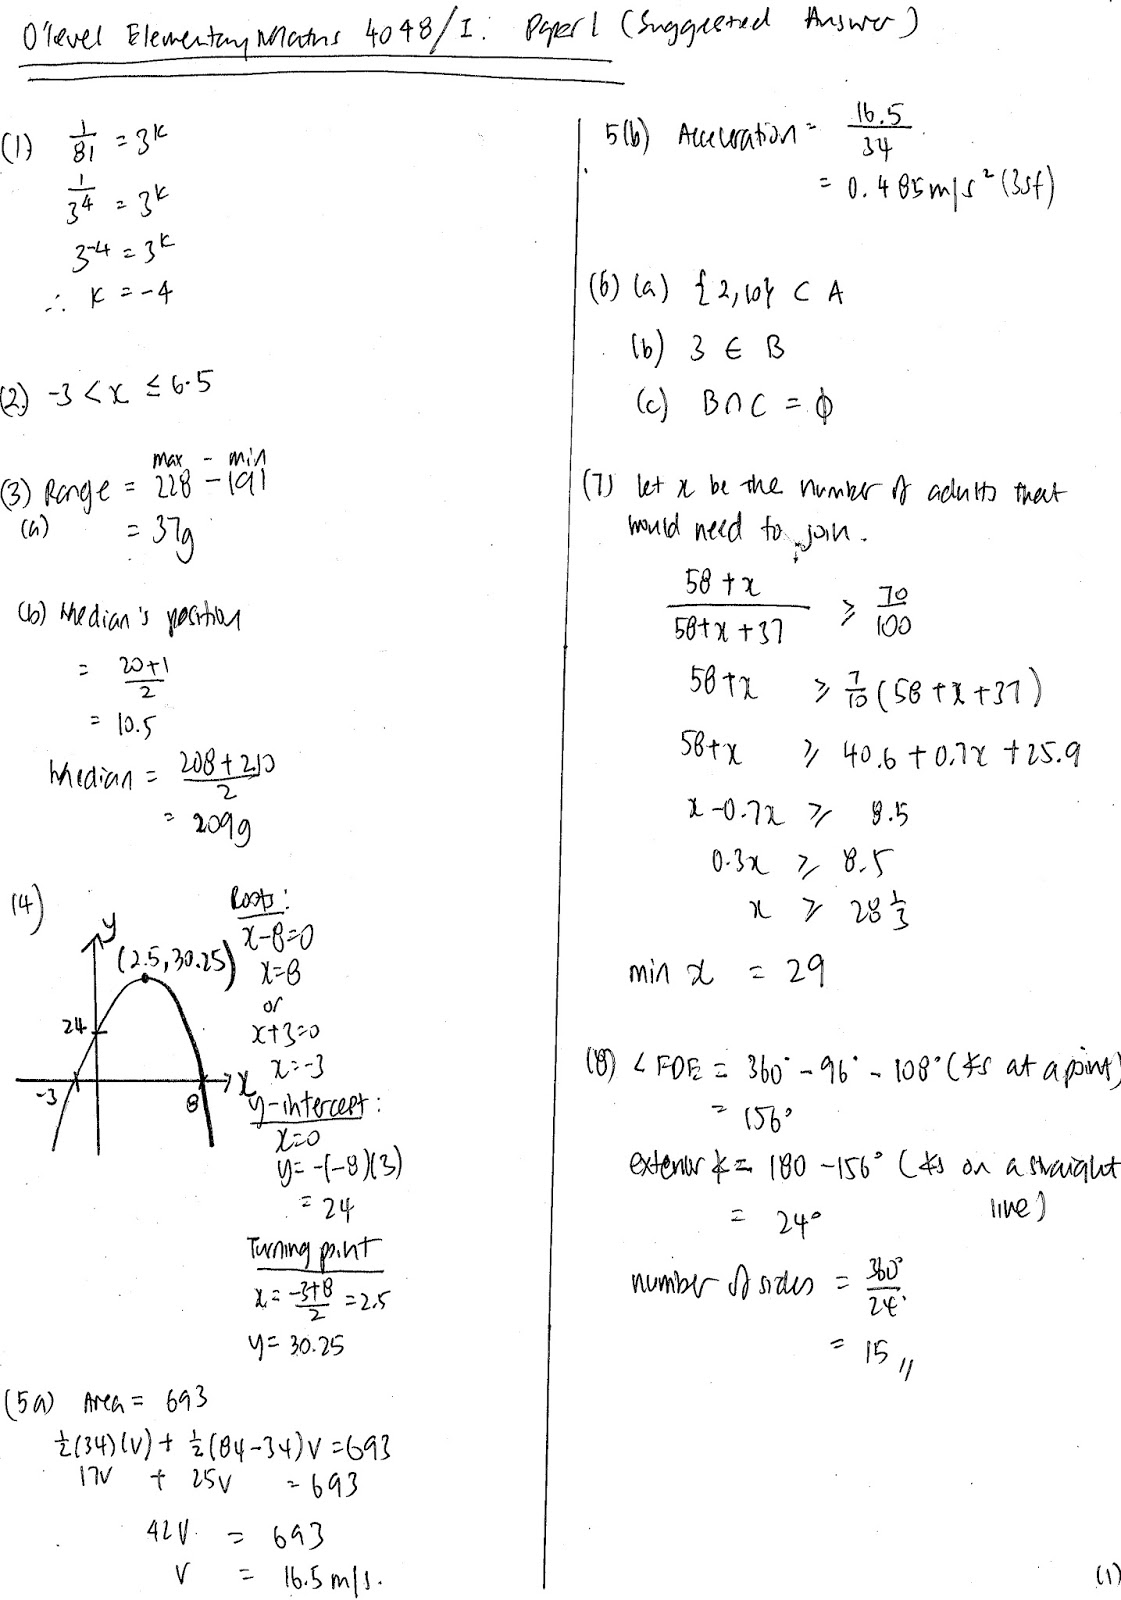 O'level Elementary Maths 4048/I: Paper 1 (Suggested Answer)
(1) 1/81 = 3^k
1/3^4 = 3^k
3^-4 = 3^k
∴ k = -4
(2) -3 < x ≤ 6.5
max - min
(3) Range = 228 - 191
(a) = 37g
(b) Median's position
= (20+1)/2
= 10.5
Median = (208+210)/2
= 209g
(4)
y
(2.5, 30.25)
24
-3
8
x
Roots:
x-8=0
x=8
or
x+3=0
x=-3
y-intercept:
x=0
y= -(-8)(3)
= 24
Turning point
x = (-3+8)/2 = 2.5
y = 30.25
(5a) Area = 693
½(34)(V) + ½(84-34)V = 693
17V + 25V = 693
42V = 693
V = 16.5 m/s.
5(b) Acceleration = 16.5/34
= 0.485 m/s² (3sf)
(6) (a) {2,10} ⊂ A
(b) 3 ∈ B
(c) B∩C = ϕ
(7) let x be the number of adults that
would need to join.
(58+x)/(58+x+37) ≥ 70/100
58+x ≥ 7/10 (58+x+37)
58+x ≥ 40.6 + 0.7x + 25.9
x-0.7x ≥ 8.5
0.3x ≥ 8.5
x ≥ 28⅓
min x = 29
(8) ∠FDE = 360° - 96° - 108° (∠s at a point)
= 156°
exterior ∠ = 180 - 156° (∠s on a straight
line)
= 24°
number of sides = 360°/24°
= 15 //
(1)